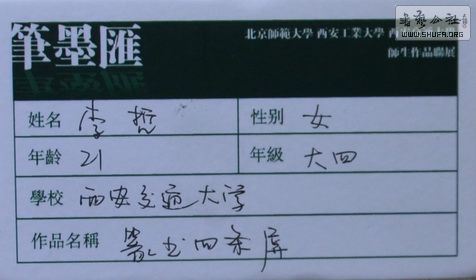 書藝公社
WWW.SHUFA.ORG
筆墨匯
北京師範大學 西安工業大學 西
師生作品聯展
姓名 李哲 性别 女
年齡 21 年級 大四
學校 西安交通大学
作品名稱 篆书四条屏